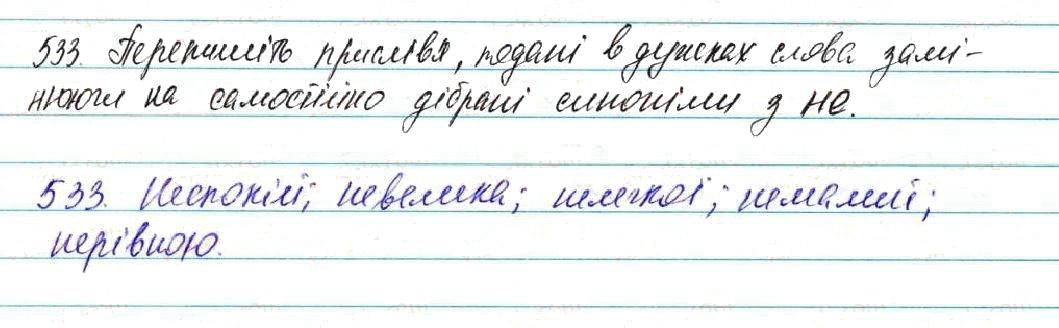 533. Перепишіть прислівя, подані в дужках слова замі-
нюючи на самостійно дібрані синоніми з не.
533. Неспокій; невелика; нелегкої; немалий;
нерівною.